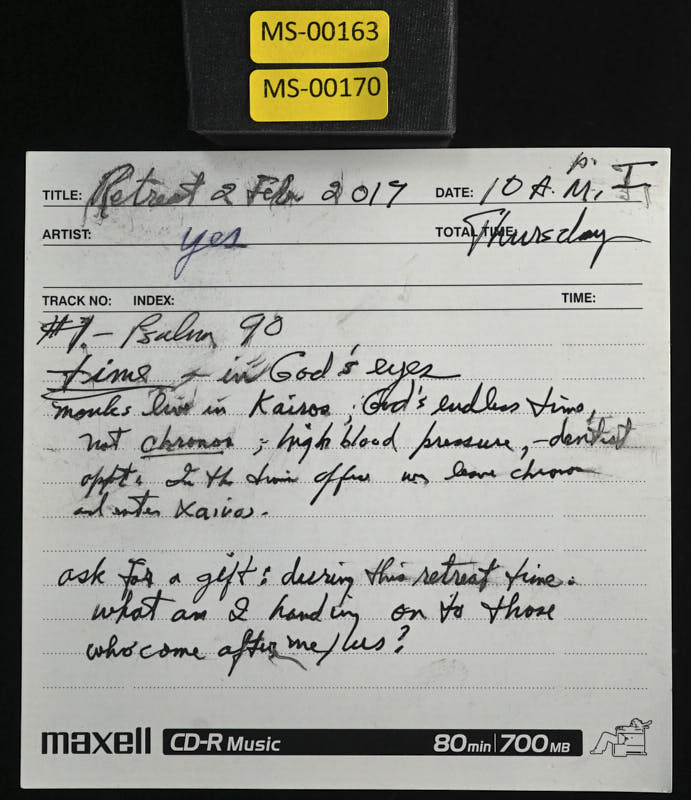 MS-00163
MS-00170
TITLE: Retreat 2 Feb 2017 DATE: 10 A.M. I
ARTIST: yes TOTAL TIME: Thursday
TRACK NO: INDEX: TIME:
#1 - Psalm 90
time - in God's eyes
monks live in Kairos, God's endless time,
not chronos; high blood pressure, - dentist
appt. In the divine office we leave chronos
and enter Kairos.
ask for a gift: during this retreat time.
what am I handing on to those
who come after me/us?
maxell CD-R Music 80min 700MB